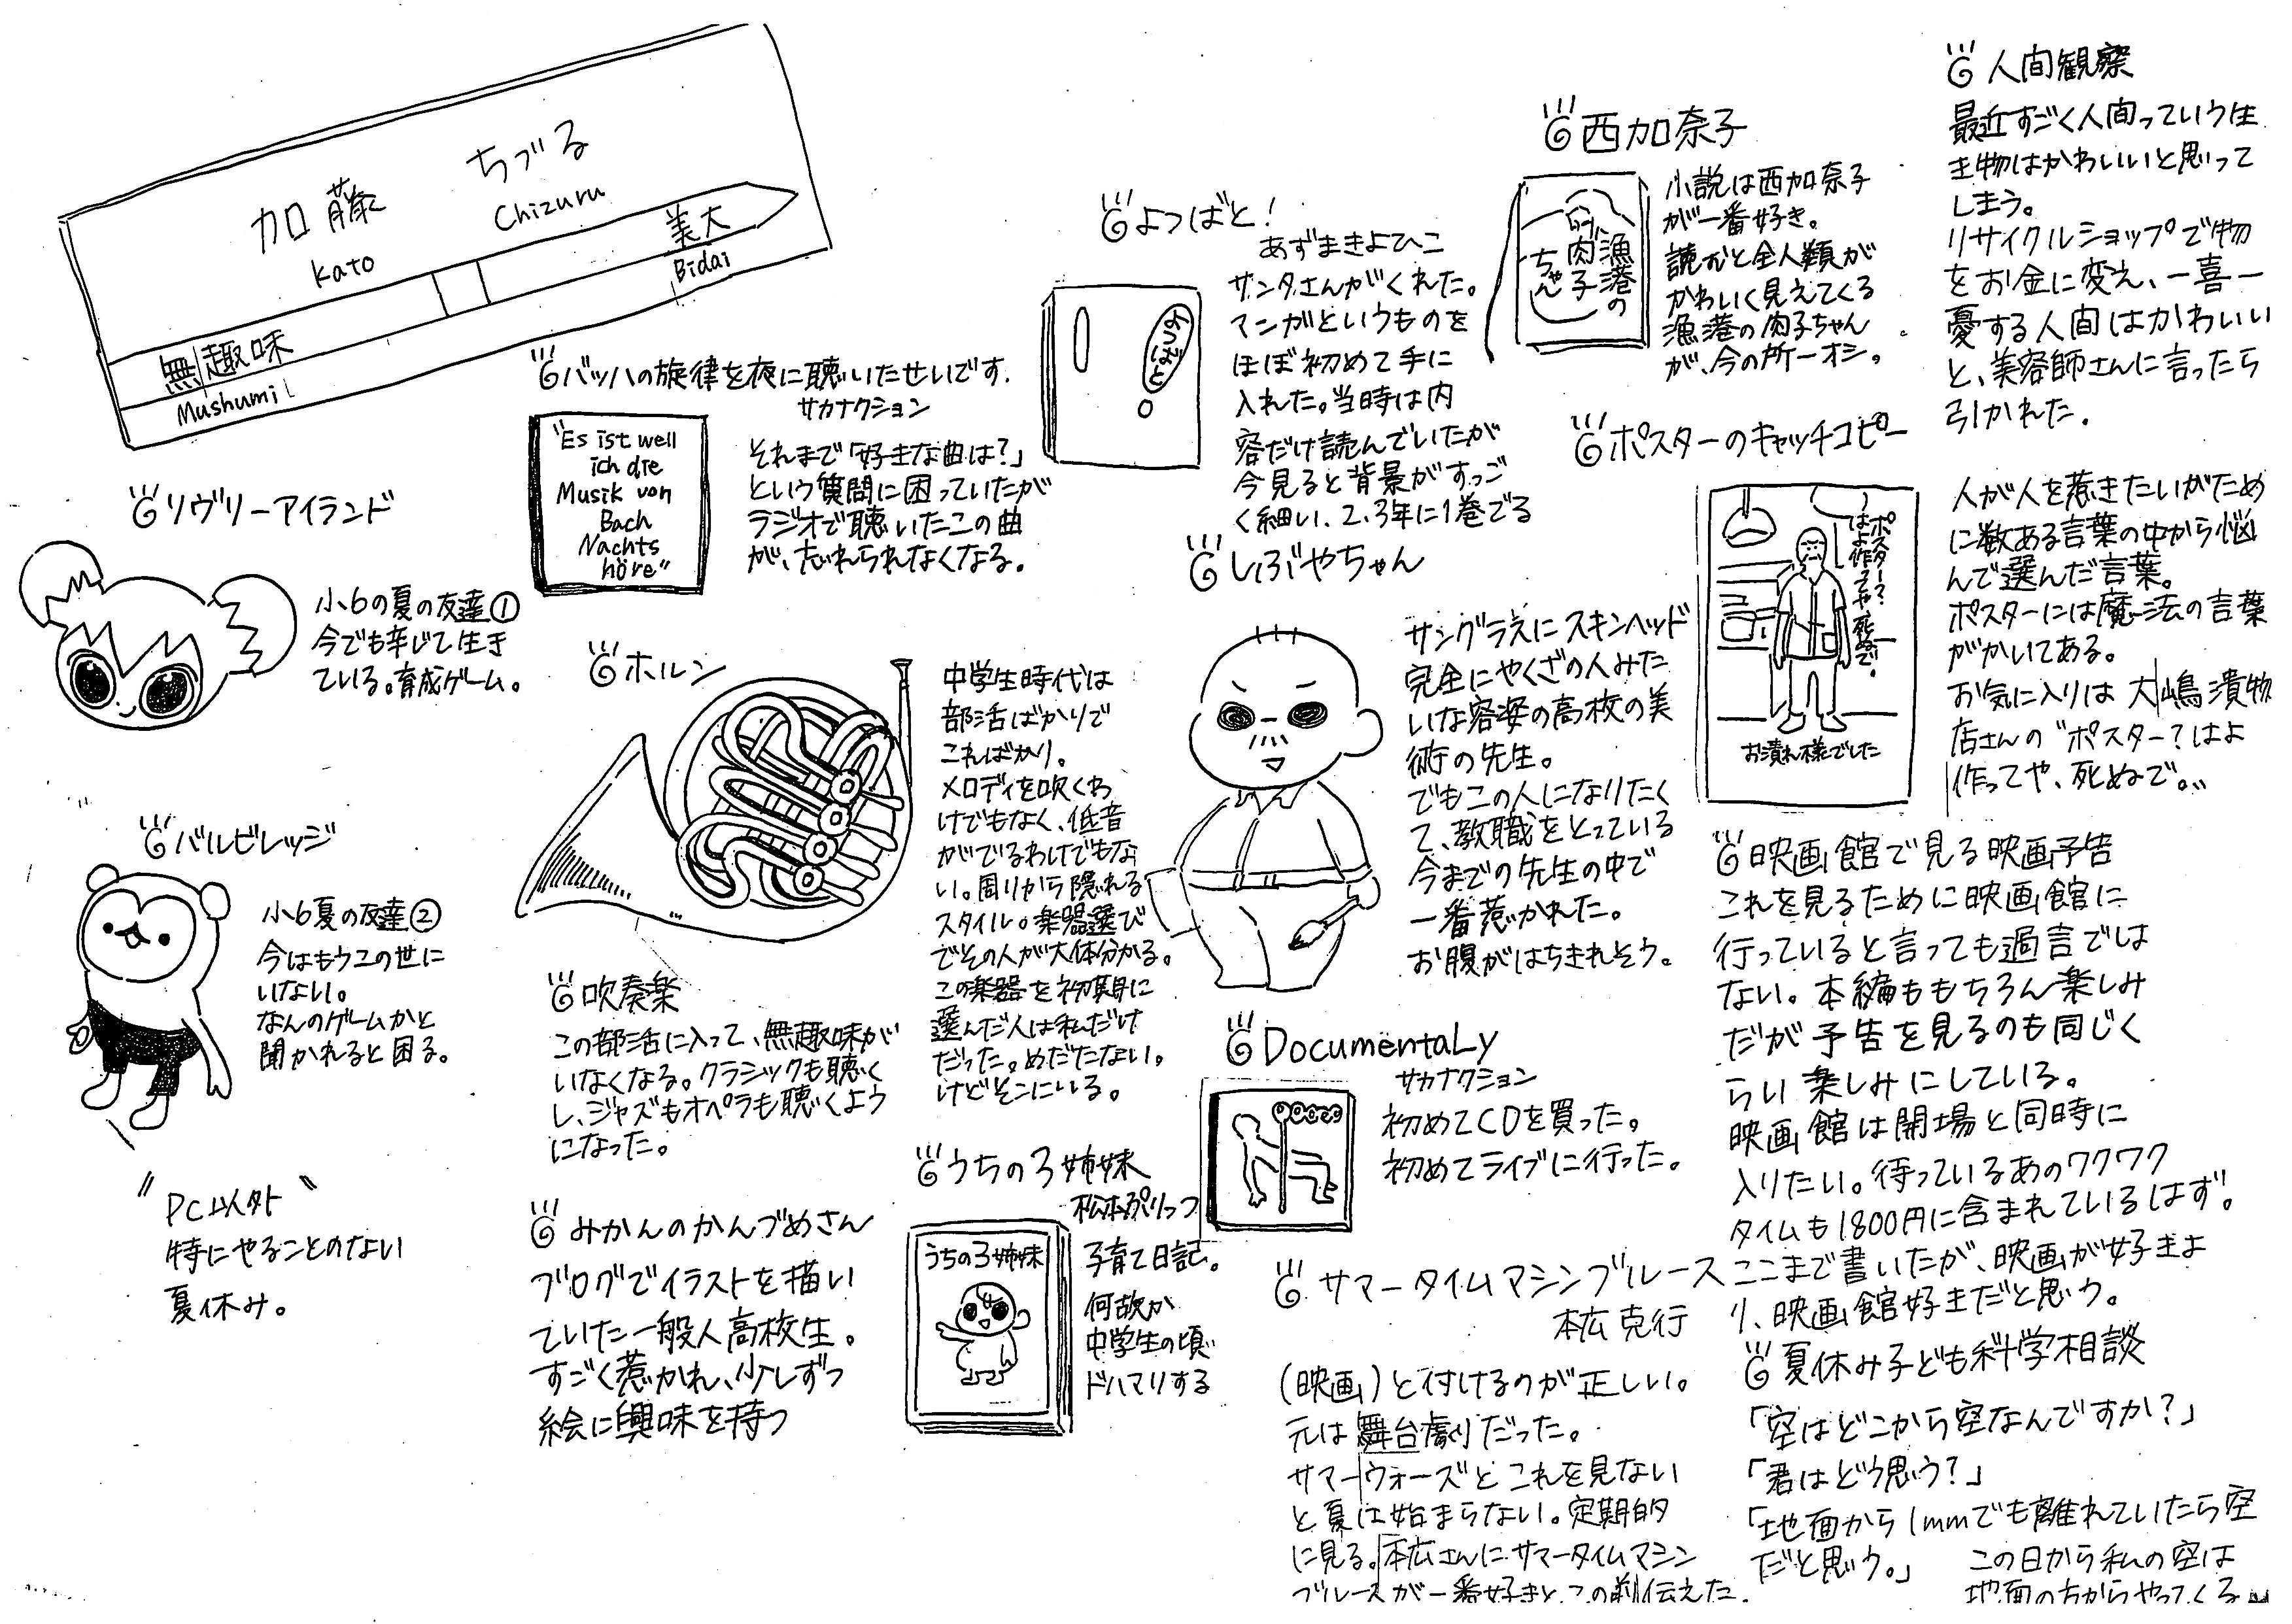 加藤 ちづる
Kato Chizuru
無趣味 美大
Mushumi Bidai
リヴリーアイランド
小6の夏の友達①
今でも辛じて生き
ている。育成ゲーム。
バルビレッジ
小6夏の友達②
今はもうこの世に
いない。
なんのゲームかと
聞かれると困る。
"PC以外"
特にやることのない
夏休み。
バッハの旋律を夜に聴いたせいです.
サカナクション
"Es ist well
ich die
Musik von
Bach
Nachts
höre"
それまで「好きな曲は?」
という質問に困っていたが
ラジオで聴いたこの曲
が、忘れられなくなる。
ホルン
中学生時代は
部活ばかりで
こればかり。
メロディを吹くわ
けでもなく、低音
がでるわけでもな
い。周りから隠れる
スタイル。楽器選び
でその人が大体分かる。
この楽器を初期に
選んだ人は私だけ
だった。めだたない。
けどそこにいる。
吹奏楽
この部活に入って、無趣味が
いなくなる。クラシックも聴く
し、ジャズもオペラも聴くよう
になった。
みかんのかんづめさん
ブログでイラストを描い
ていた一般人高校生。
すごく惹かれ、少しずつ
絵に興味を持つ
うちの3姉妹
松本ぷりっつ
うちの3姉妹
子育て日記。
何故か
中学生の頃
ドハマりする
よつばと!
あずまきよひこ
よつばと
サンタさんがくれた。
マンガというものを
ほぼ初めて手に
入れた。当時は内
容だけ読んでいたが
今見ると背景がすっご
く細い、2、3年に1巻でる
しぶやちゃん
サングラスにスキンヘッド
完全にやくざの人みた
いな容姿の高校の美
術の先生。
でもこの人になりたく
て、教職をとっている
今までの先生の中で
一番惹かれた。
お腹がはちきれそう。
DocumentaLy
サカナクション
初めてCDを買った。
初めてライブに行った。
サマータイムマシンブルース
本広克行
(映画)と付けるのが正しい。
元は舞台劇だった。
サマーウォーズとこれを見ない
と夏は始まらない。定期的
に見る。本広さんにサマータイムマシン
ブルースが一番好きと、この前伝えた.
西加奈子
漁港の
肉子
ちゃん
小説は西加奈子
が一番好き。
読むと全人類が
かわいく見えてくる
漁港の肉子ちゃん
が、今の所一オシ。
ポスターのキャッチコピー
ポスター?
はよ作ってや、死ぬで。
お漬れ様でした
人が人を惹きたいがため
に数ある言葉の中から悩
んで選んだ言葉。
ポスターには魔法の言葉
がかいてある。
お気に入りは 大嶋漬物
店さんの"ポスター?はよ
作ってや、死ぬで。"
人間観察
最近すごく人間っていう生
き物はかわいいと思って
しまう。
リサイクルショップで物
をお金に変え、一喜一
憂する人間はかわいい
と、美容師さんに言ったら
引かれた.
映画館で見る映画予告
これを見るために映画館に
行っていると言っても過言では
ない。本編ももちろん楽しみ
だが予告を見るのも同じく
らい楽しみにしている。
映画館は開場と同時に
入りたい。待っているあのワクワク
タイムも1800円に含まれているはず。
ここまで書いたが、映画が好きよ
り、映画館好きだと思う。
夏休み子ども科学相談
「空はどこから空なんですか?」
「君はどう思う?」
「地面から1mmでも離れていたら空
だと思う。」
この日から私の空は
地面の方からやってくる